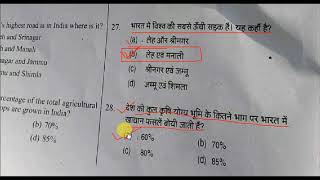 's highest road is in India where is it?
and Srinagar
nd Manali
nagar and Jammu
nu and Shimla
rcentage of the total agricultural
ops are grown in India?
(b) 70%
(d) 85%
27. भारत में विश्व की सबसे ऊँची सड़क है। यह कहाँ है?
(a) लेह और श्रीनगर
(b) लेह एवं मनाली
(c) श्रीनगर एवं जम्मू
(d) जम्मू एवं शिमला
28. देश की कुल कृषि योग्य भूमि के कितने भाग पर भारत में
खाद्यान्न फसलें बोयी जाती हैं?
60%
(b) 70%
(c) 80%
(d) 85%